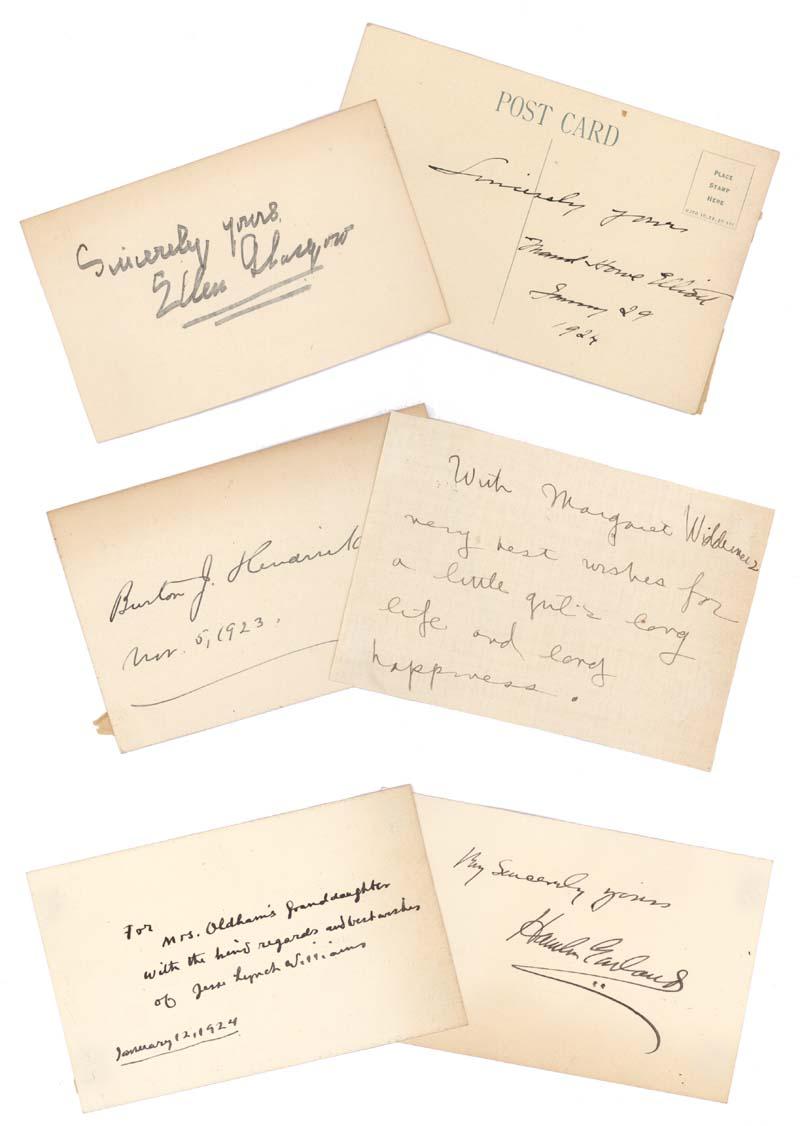 Sincerely yours,
Ellen Glasgow
POST CARD
PLACE
STAMP
HERE
Sincerely yours
Maud Howe Elliott
January 29
1924
Burton J. Hendrick
Nov. 5, 1923.
With Margaret Widdemer's
very best wishes for
a little girl's long
life and long
happiness.
For Mrs. Oldham's Granddaughter
with the kind regards and best wishes
of Jesse Lynch Williams
January 12, 1924
Very Sincerely yours
Hamlin Garland